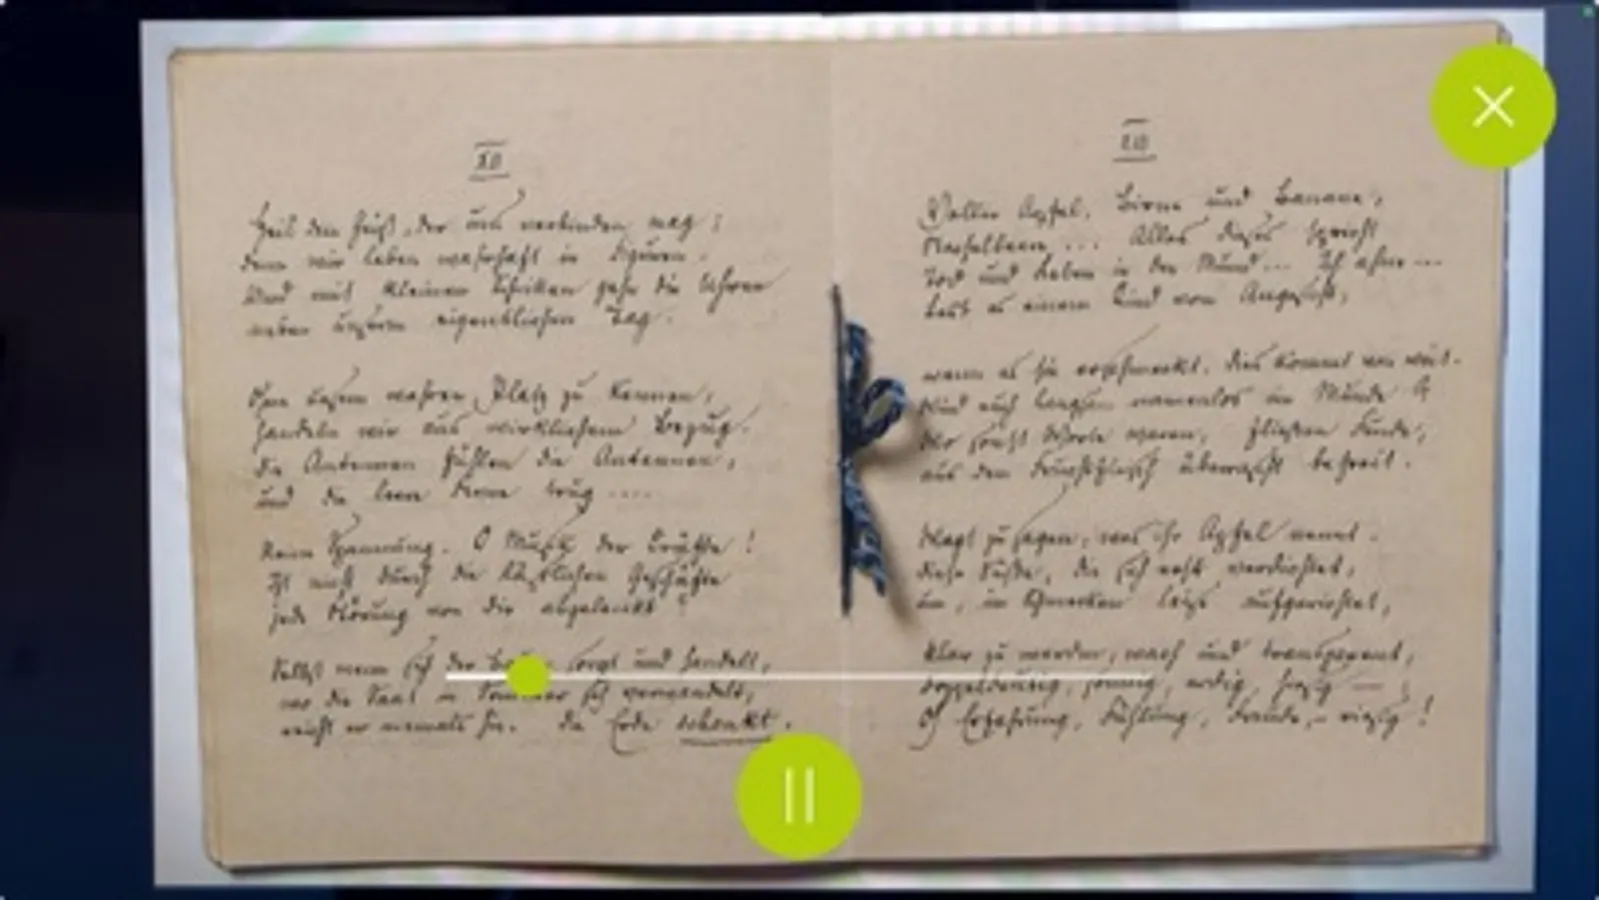 XII
Heil dem Geist, der uns verbinden mag;
denn wir leben wahrhaft in Figuren.
Und mit kleinen Schritten gehn die Uhren
neben unserm eigentlichen Tag.
Ohne unsern wahren Platz zu kennen,
handeln wir aus wirklichem Bezug.
Die Antennen fühlen die Antennen,
und die leere Ferne trug ....
Reine Spannung. O Musik der Kräfte!
Ist nicht durch die läßlichen Geschäfte
jede Störung von dir abgelenkt?
Selbst wenn sich der Bauer sorgt und handelt,
wo die Saat in Sommer sich verwandelt,
reicht er niemals hin. Die Erde schenkt.
XIII
Voller Apfel, Birne und Banane,
Stachelbeere ... Alles dieses spricht
Tod und Leben in den Mund ... Ich ahne ...
Lest es einem Kind vom Angesicht,
wenn es sie erschmeckt. Dies kommt von weit.
Wird euch langsam namenlos im Munde?
Wo sonst Worte waren, fließen Funde,
aus dem Fruchtfleisch überrascht befreit.
Wagt zu sagen, was ihr Apfel nennt.
Diese Süße, die sich erst verdichtet,
um, im Schmecken leise aufgerichtet,
klar zu werden, wach und transparent,
doppeldeutig, sonnig, erdig, hiesig —:
O Erfahrung, Fühlung, Freude, – riesig!